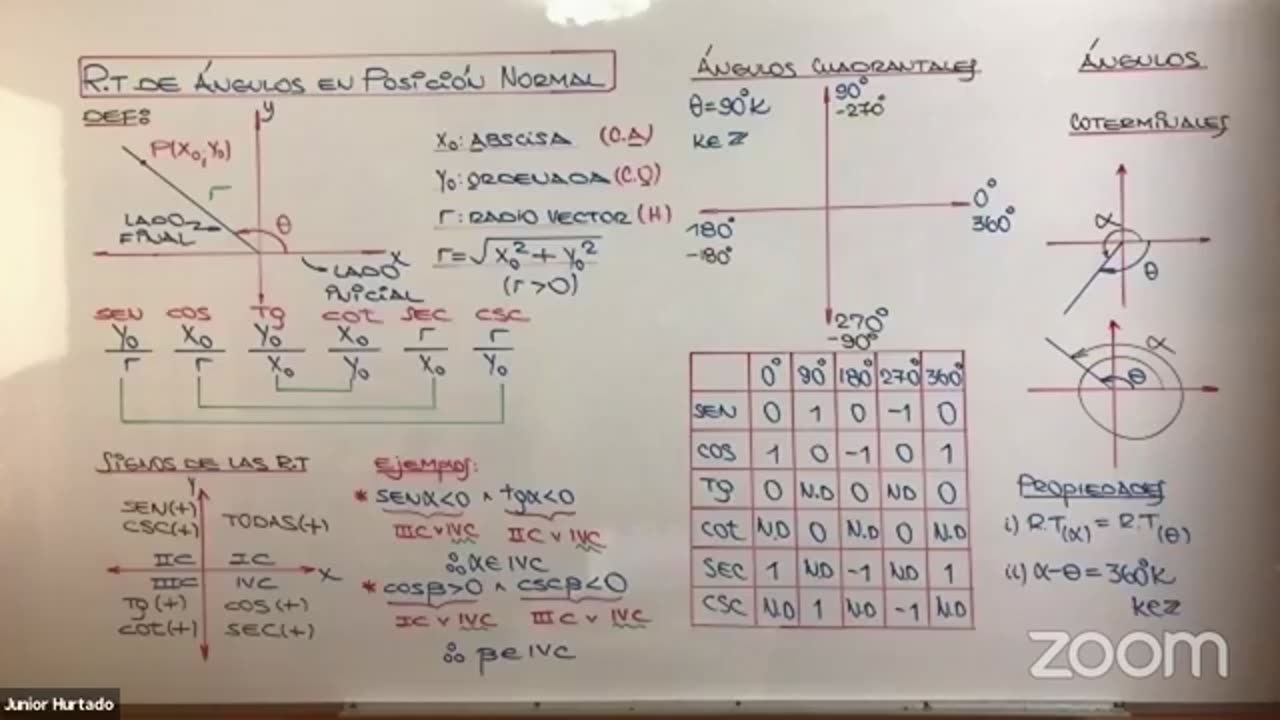 R.T. DE ÁNGULOS EN POSICIÓN NORMAL
DEF:
y
P(X₀,Y₀)
r
LADO
FINAL
θ
X
LADO
INICIAL
X₀: ABSCISA (C.A)
Y₀: ORDENADA (C.O)
r: RADIO VECTOR (H)
r=√X₀²+Y₀²
(r>0)
SEN COS Tg Cot SEC CSC
Y₀/r X₀/r Y₀/X₀ X₀/Y₀ r/X₀ r/Y₀
SIGNOS DE LAS R.T
Y
SEN(+)
CSC(+)
TODAS(+)
IIC IC
X
IIIC IVC
Tg(+) COS(+)
Cot(+) SEC(+)
Ejemplos:
* SENα<0 ∧ tgα<0
IIIC ∨ IVC IIC ∨ IVC
∴ α∈IVC
* cosβ>0 ∧ cscβ<0
IC ∨ IVC IIIC ∨ IVC
∴ β∈IVC
ÁNGULOS CUADRANTALES
θ=90°K
k∈ℤ
90°
-270°
0°
360°
180°
-180°
270°
-90°
0° 90° 180° 270° 360°
SEN 0 1 0 -1 0
COS 1 0 -1 0 1
Tg 0 N.D 0 ND 0
Cot N.D 0 N.D 0 N.D
SEC 1 ND -1 ND 1
CSC N.D 1 ND -1 N.D
ÁNGULOS
COTERMINALES
α
θ
α
θ
PROPIEDADES
i) R.T(α) = R.T(θ)
ii) α-θ=360°K
k∈ℤ
zoom
Junior Hurtado